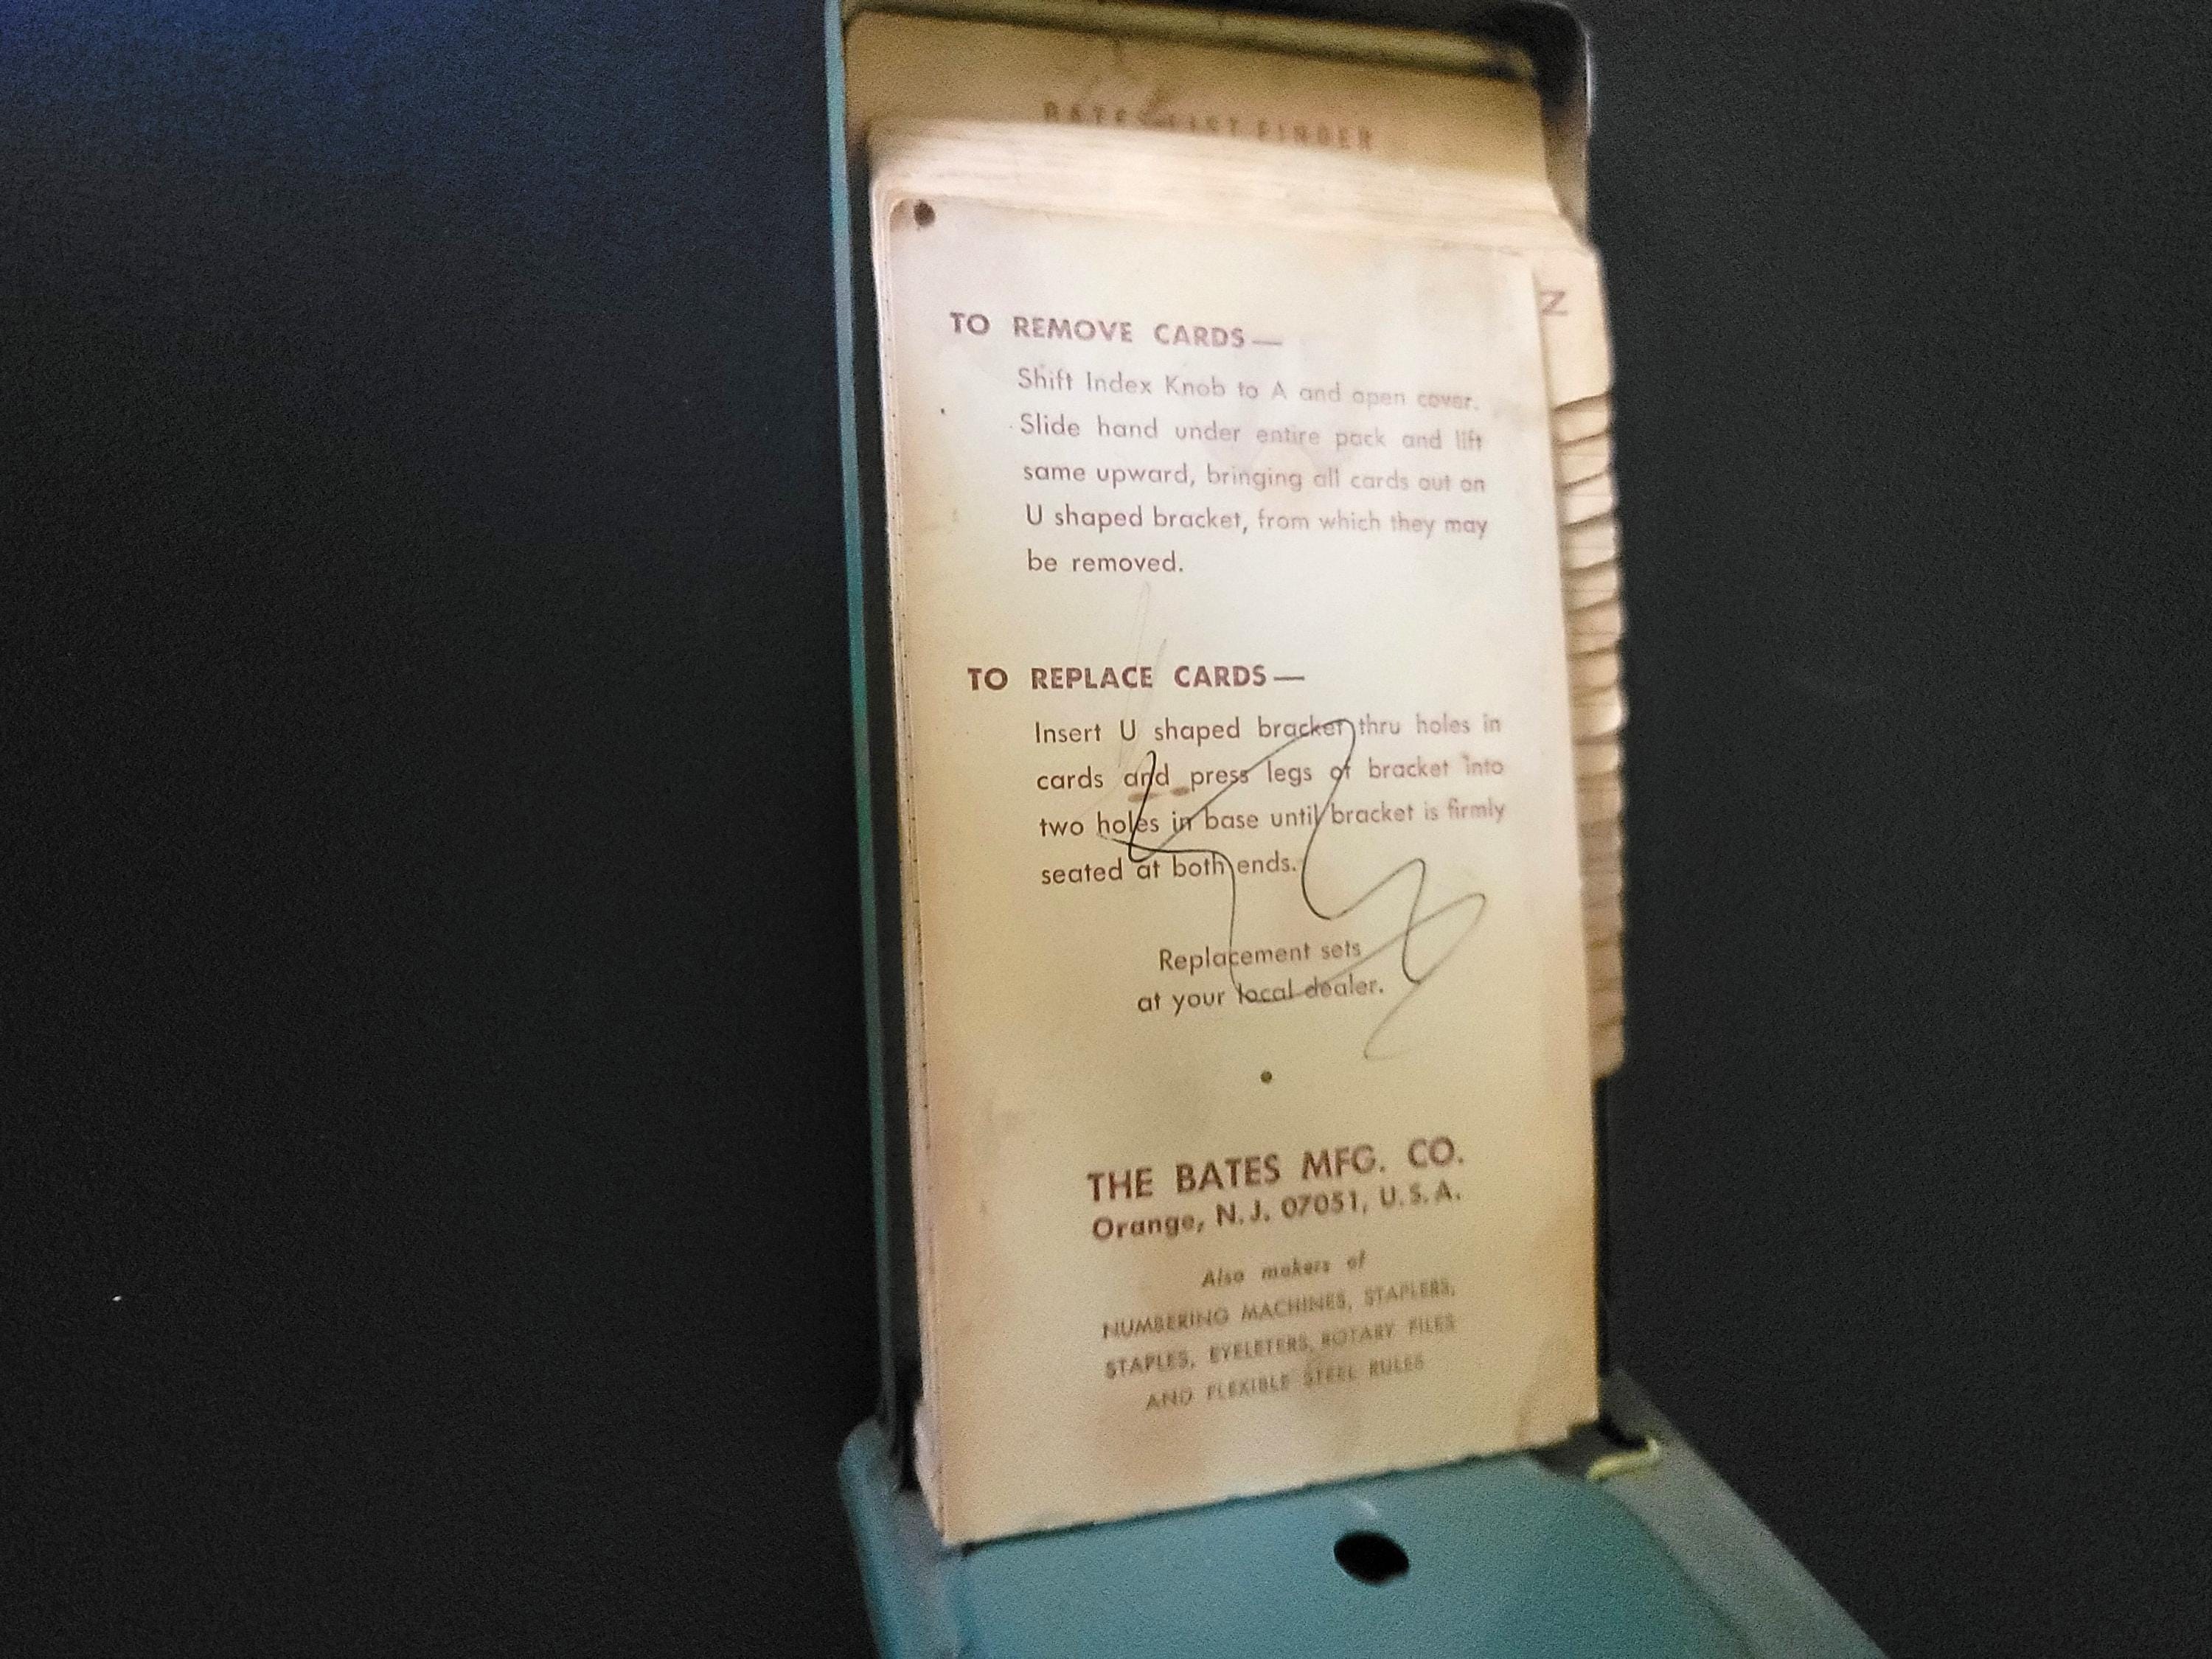 BATES LIST FINDER
Z
TO REMOVE CARDS—
Shift Index Knob to A and open cover.
Slide hand under entire pack and lift
same upward, bringing all cards out on
U shaped bracket, from which they may
be removed.
TO REPLACE CARDS—
Insert U shaped bracket thru holes in
cards and press legs of bracket into
two holes in base until bracket is firmly
seated at both ends.
Replacement sets
at your local dealer.
THE BATES MFG. CO.
Orange, N.J. 07051, U.S.A.
Also makers of
NUMBERING MACHINES, STAPLERS,
STAPLES, EYELETERS, ROTARY FILES
AND FLEXIBLE STEEL RULES